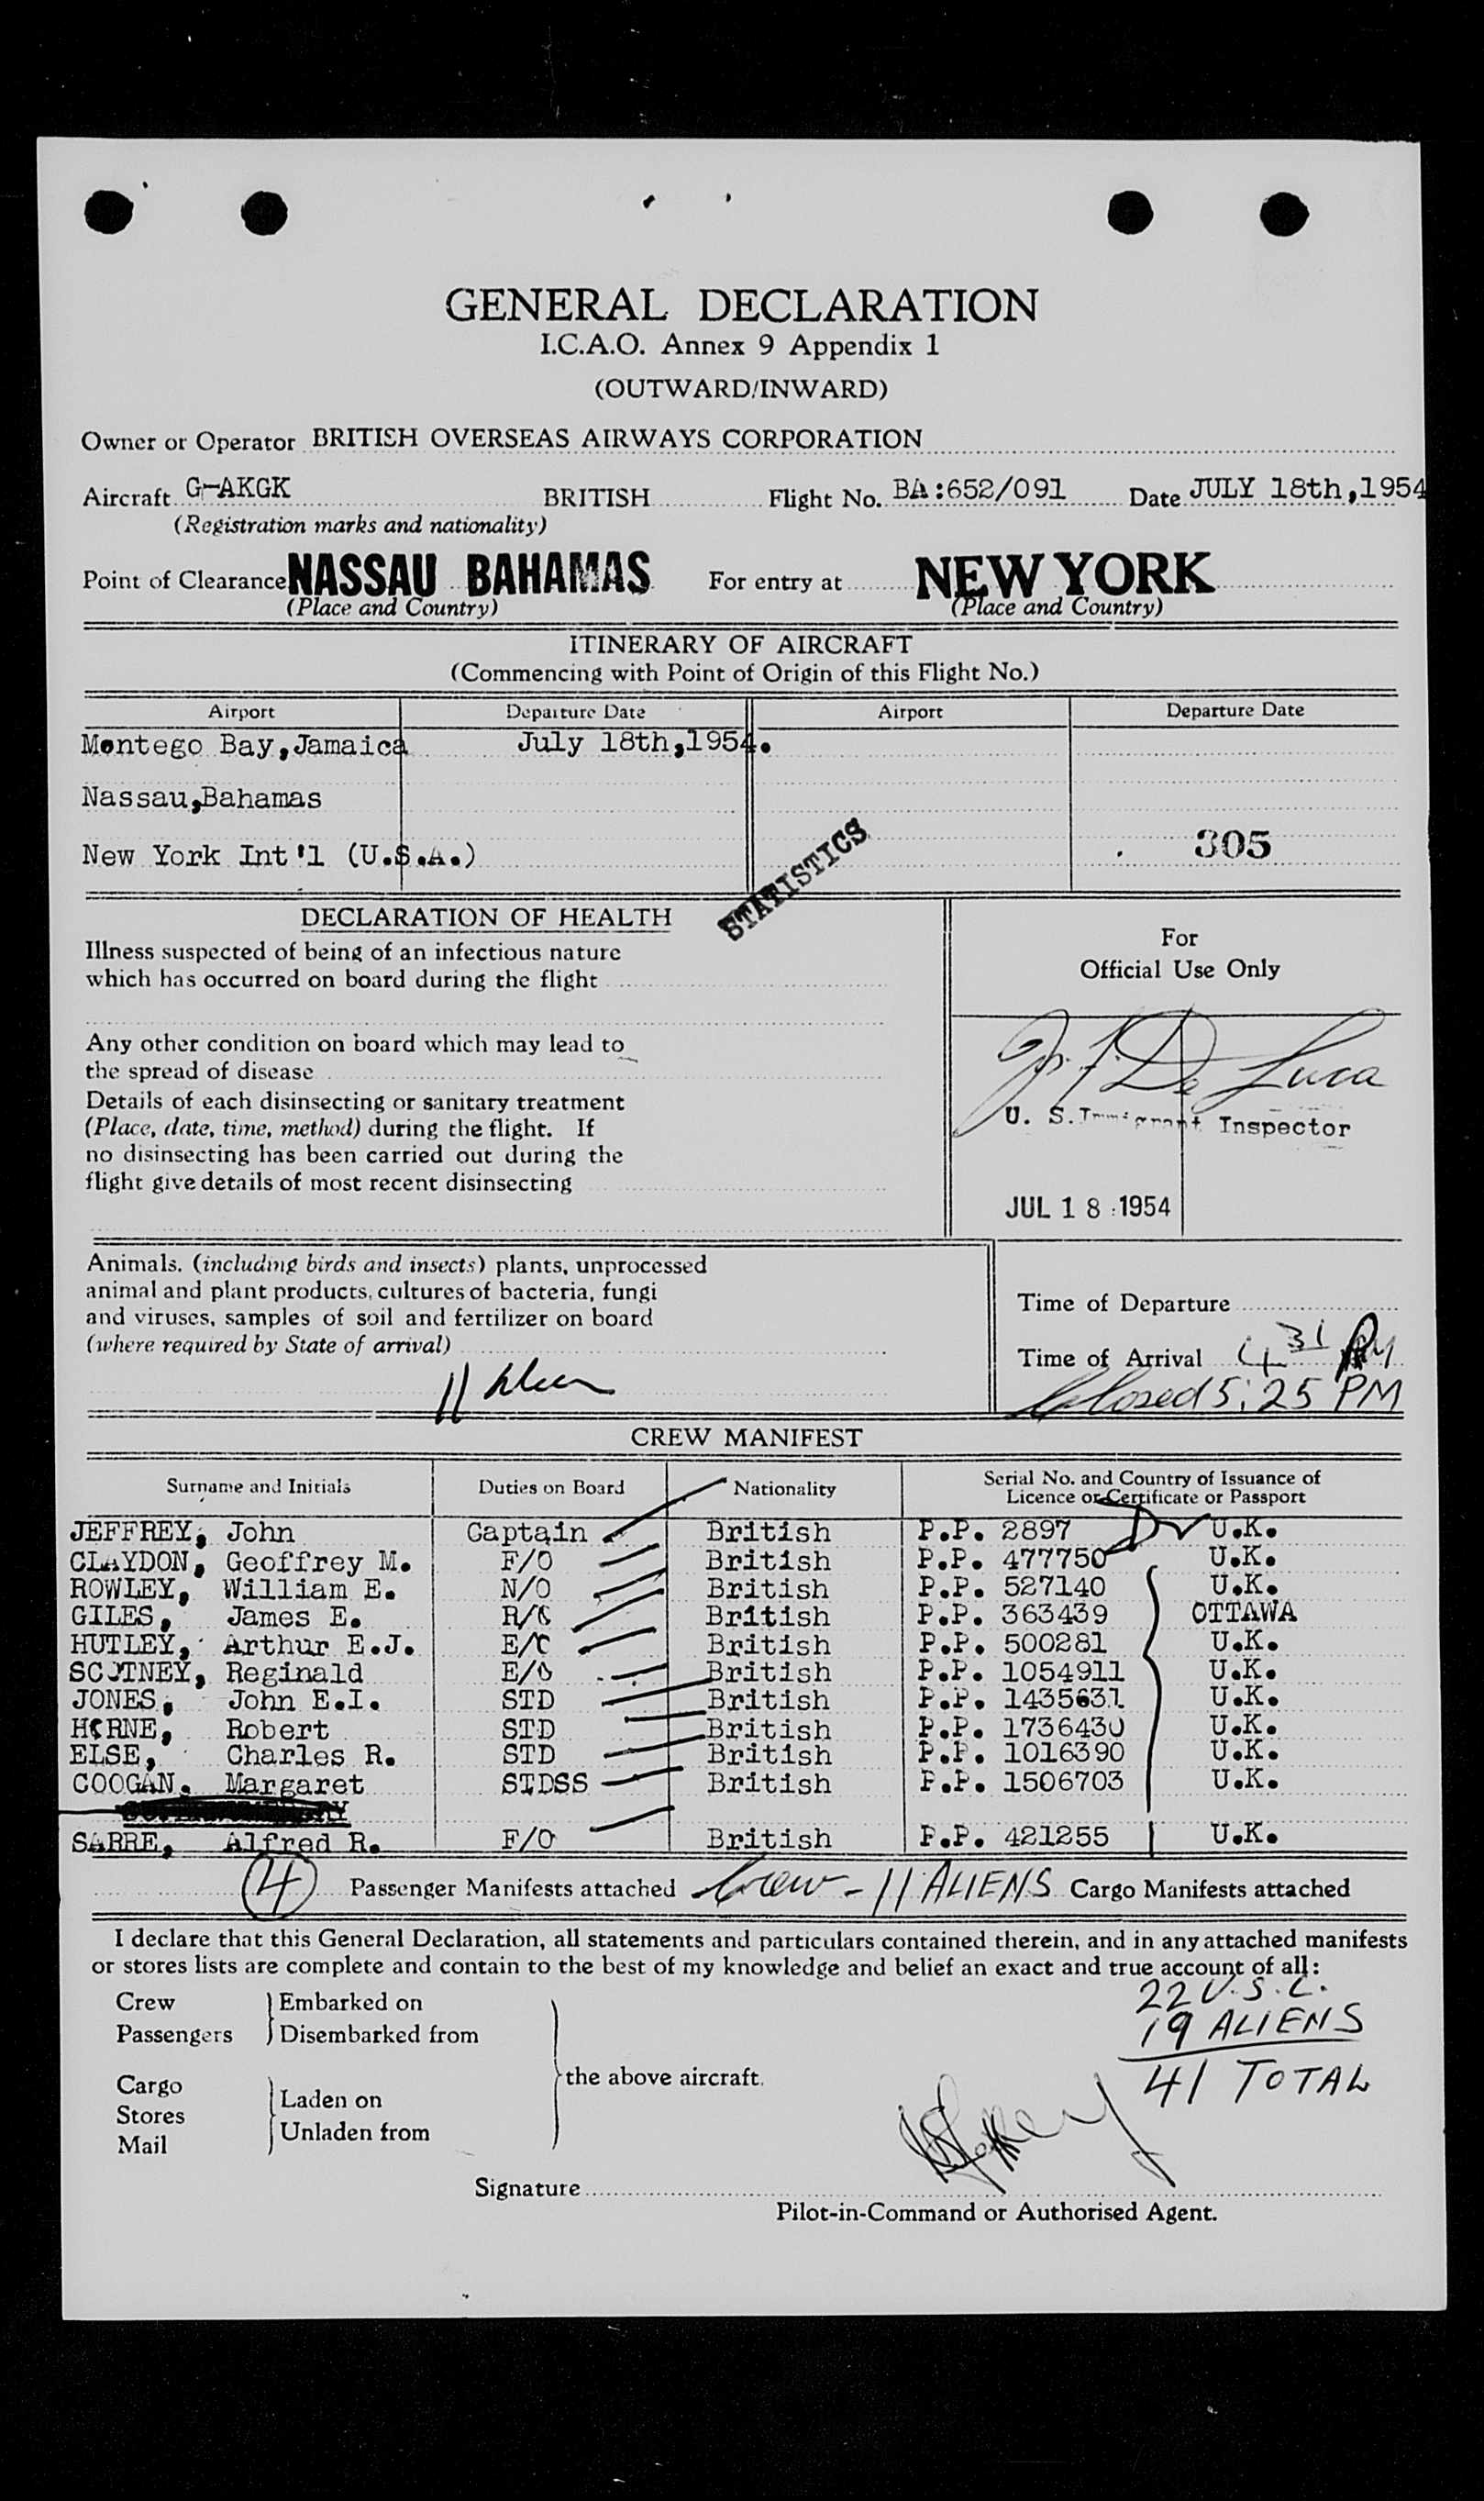 GENERAL DECLARATION
I.C.A.O. Annex 9 Appendix 1
(OUTWARD/INWARD)
Owner or Operator BRITISH OVERSEAS AIRWAYS CORPORATION
Aircraft G-AKGK BRITISH Flight No. BA:652/091 Date JULY 18th,1954
(Registration marks and nationality)
Point of Clearance NASSAU BAHAMAS For entry at NEW YORK
(Place and Country) (Place and Country)
ITINERARY OF AIRCRAFT
(Commencing with Point of Origin of this Flight No.)
Airport Departure Date Airport Departure Date
Montego Bay,Jamaica July 18th,1954.
Nassau,Bahamas
New York Int'l (U.S.A.) 305
STATISTICS
DECLARATION OF HEALTH
Illness suspected of being of an infectious nature
which has occurred on board during the flight
Any other condition on board which may lead to
the spread of disease
Details of each disinsecting or sanitary treatment
(Place, date, time, method) during the flight. If
no disinsecting has been carried out during the
flight give details of most recent disinsecting
For
Official Use Only
De Luca
U. S. Immigrant Inspector
JUL 18 1954
Animals, (including birds and insects) plants, unprocessed
animal and plant products, cultures of bacteria, fungi
and viruses, samples of soil and fertilizer on board
(where required by State of arrival)
11
Time of Departure
Time of Arrival 4 31 PM
Closed 5:25 PM
CREW MANIFEST
Surname and Initials Duties on Board Nationality Serial No. and Country of Issuance of
Licence or Certificate or Passport
JEFFREY, John Captain British P.P. 2897 U.K.
CLAYDON, Geoffrey M. F/O British P.P. 477750 U.K.
ROWLEY, William E. N/O British P.P. 527140 U.K.
GILES, James E. R/O British P.P. 363439 OTTAWA
HUTLEY, Arthur E.J. E/O British P.P. 500281 U.K.
SCOTNEY, Reginald E/O British P.P. 1054911 U.K.
JONES, John E.I. STD British P.P. 1435631 U.K.
HORNE, Robert STD British P.P. 1736430 U.K.
ELSE, Charles R. STD British P.P. 1016390 U.K.
COOGAN, Margaret STDSS British P.P. 1506703 U.K.
SARRE, Alfred R. F/O British P.P. 421255 U.K.
4 Passenger Manifests attached Crew - 11 ALIENS Cargo Manifests attached
I declare that this General Declaration, all statements and particulars contained therein, and in any attached manifests
or stores lists are complete and contain to the best of my knowledge and belief an exact and true account of all:
Crew Embarked on
Passengers Disembarked from
Cargo
Stores Laden on
Mail Unladen from
the above aircraft.
22 U.S.C.
19 ALIENS
41 TOTAL
Signature
Pilot-in-Command or Authorised Agent.